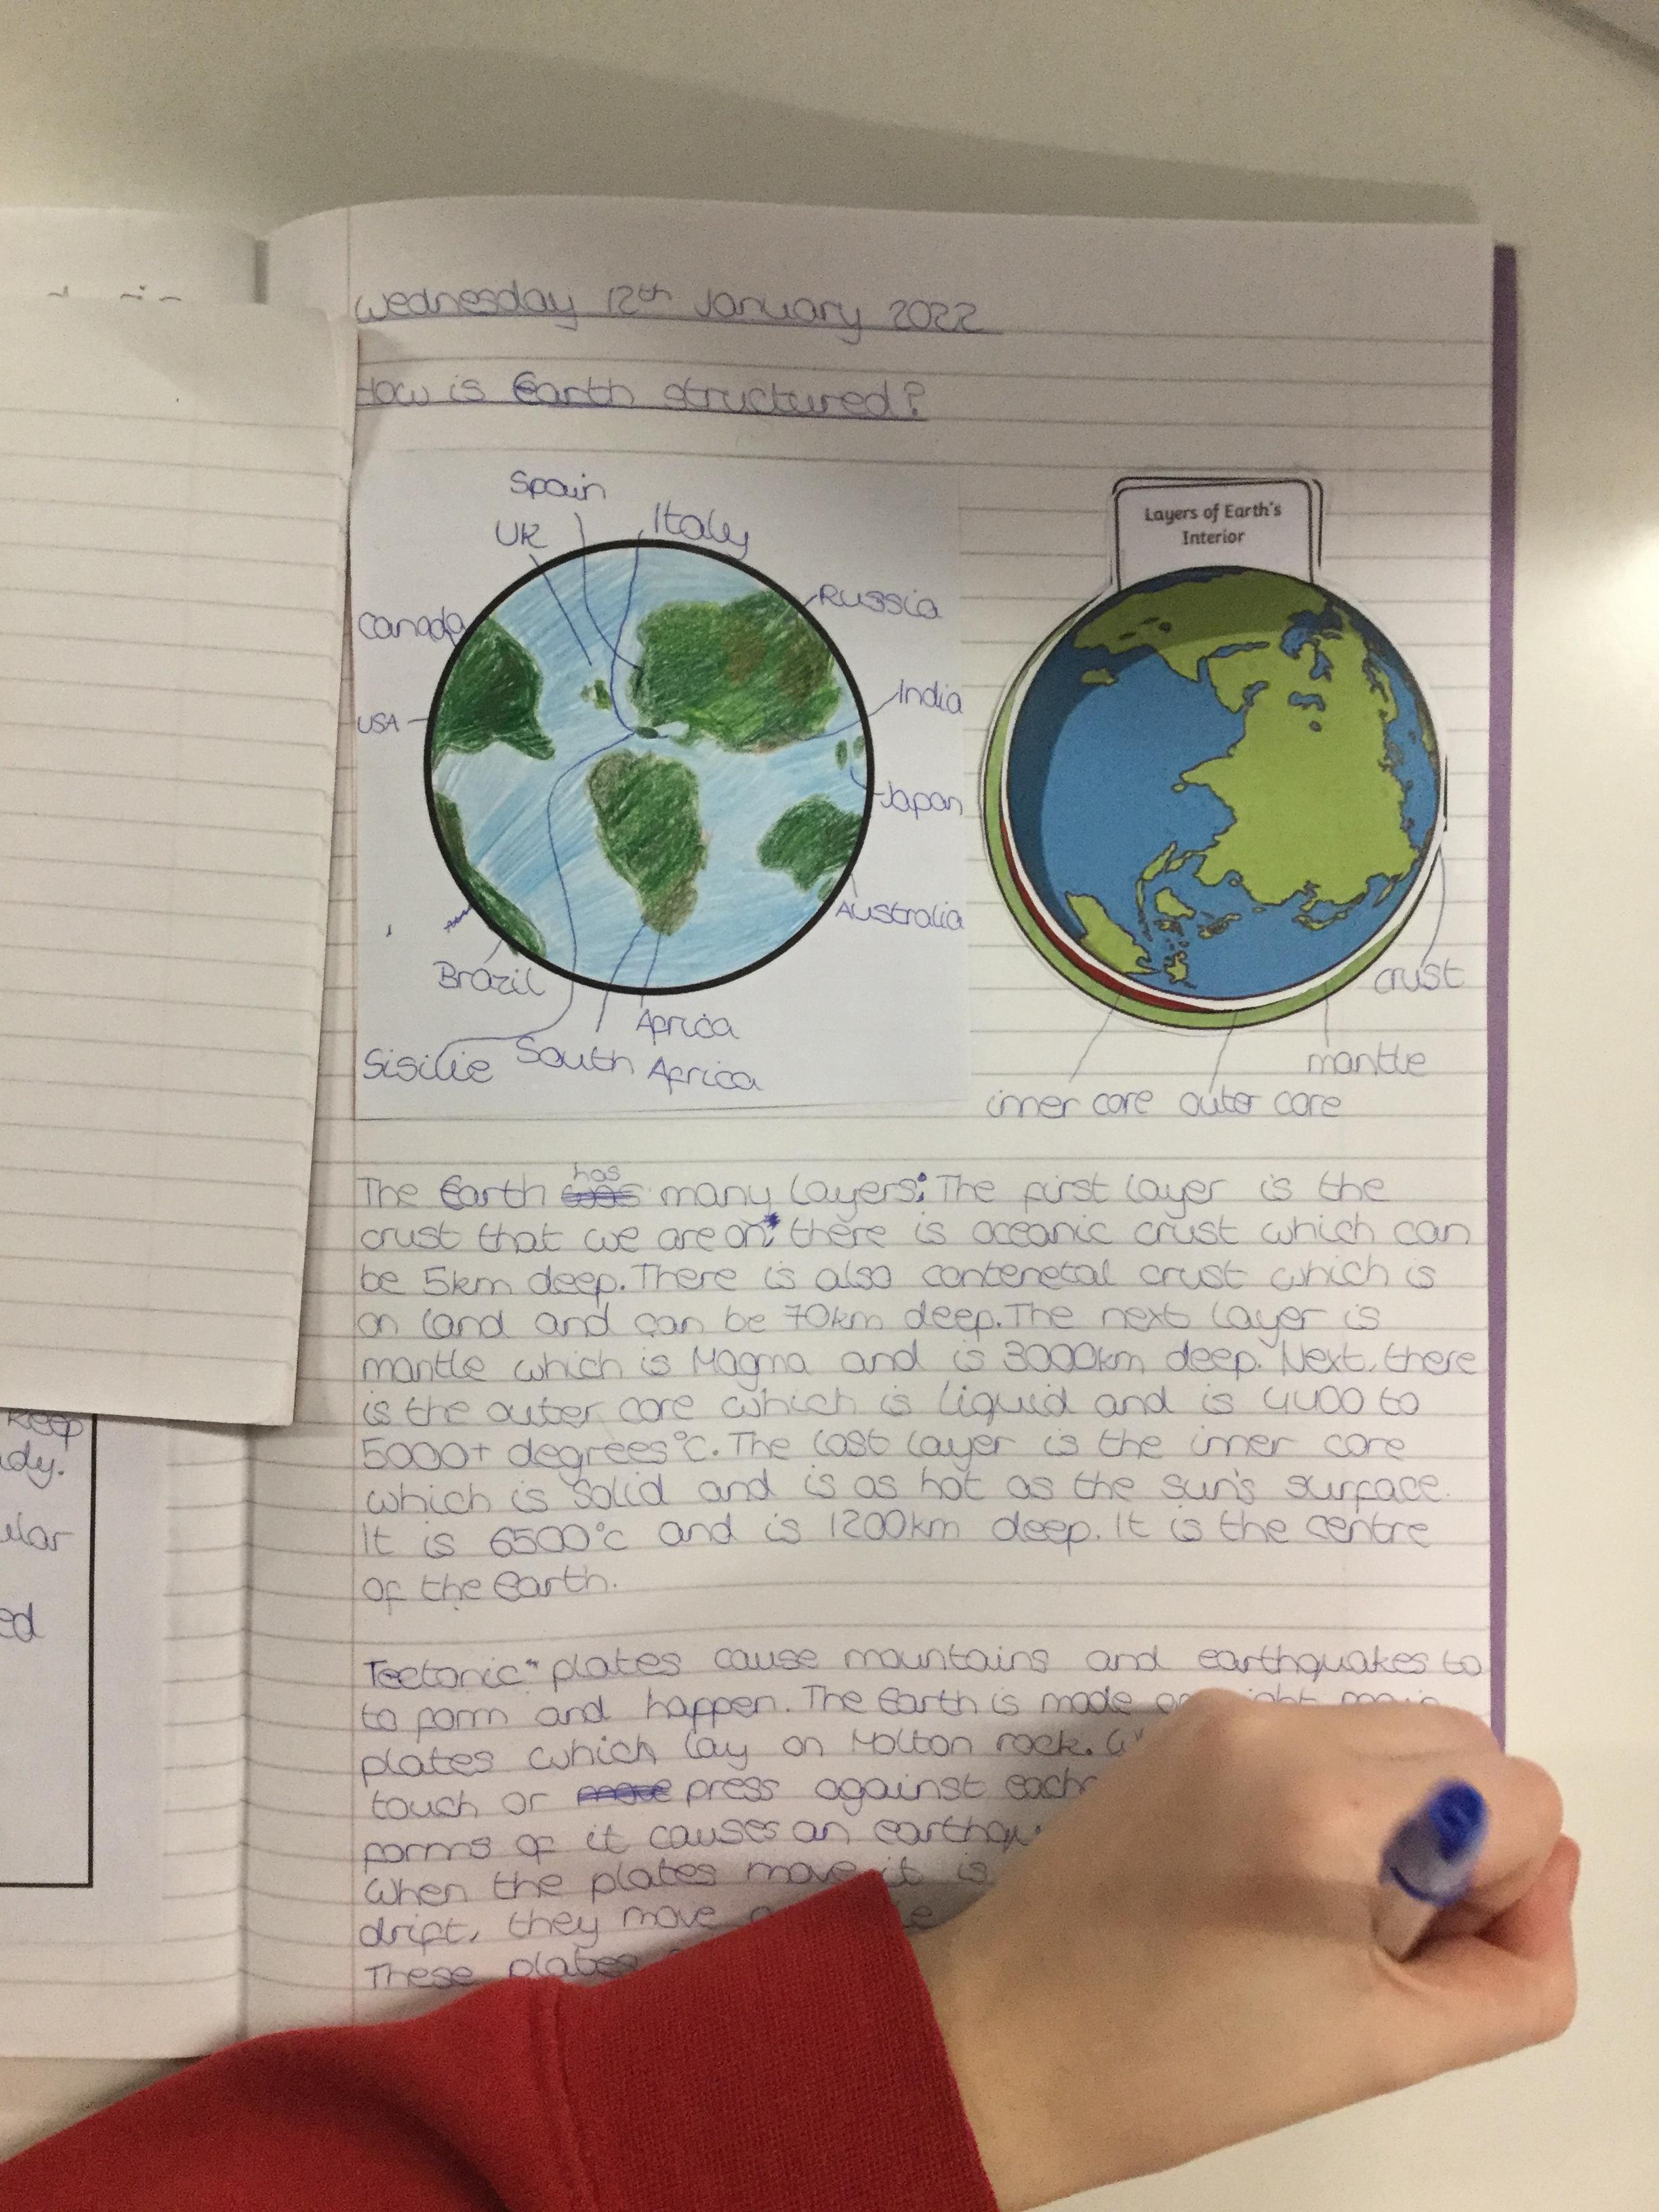 Wednesday 12th January 2022
How is Earth structured?
Spain
UK
Italy
Canada
Russia
USA
India
Japan
Australia
Brazil
Africa
Sisilie
South Africa
Layers of Earth's
Interior
crust
mantle
inner core outer core
The Earth has many layers: The first layer is the
crust that we are on; there is oceanic crust which can
be 5km deep. There is also contenetal crust which is
on land and can be 70km deep. The next layer is
mantle which is Magma and is 3000km deep. Next, there
is the outer core which is liquid and is 4400 to
5000+ degrees °C. The last layer is the inner core
which is solid and is as hot as the sun's surface.
It is 6500°c and is 1200km deep. It is the centre
of the Earth.
Tectonic plates cause mountains and earthquakes to
to form and happen. The Earth is made
plates which lay on Molton rock.
touch or press against
forms of it causes an
When the plates move it is
drift, they move
These plates
keep
ed